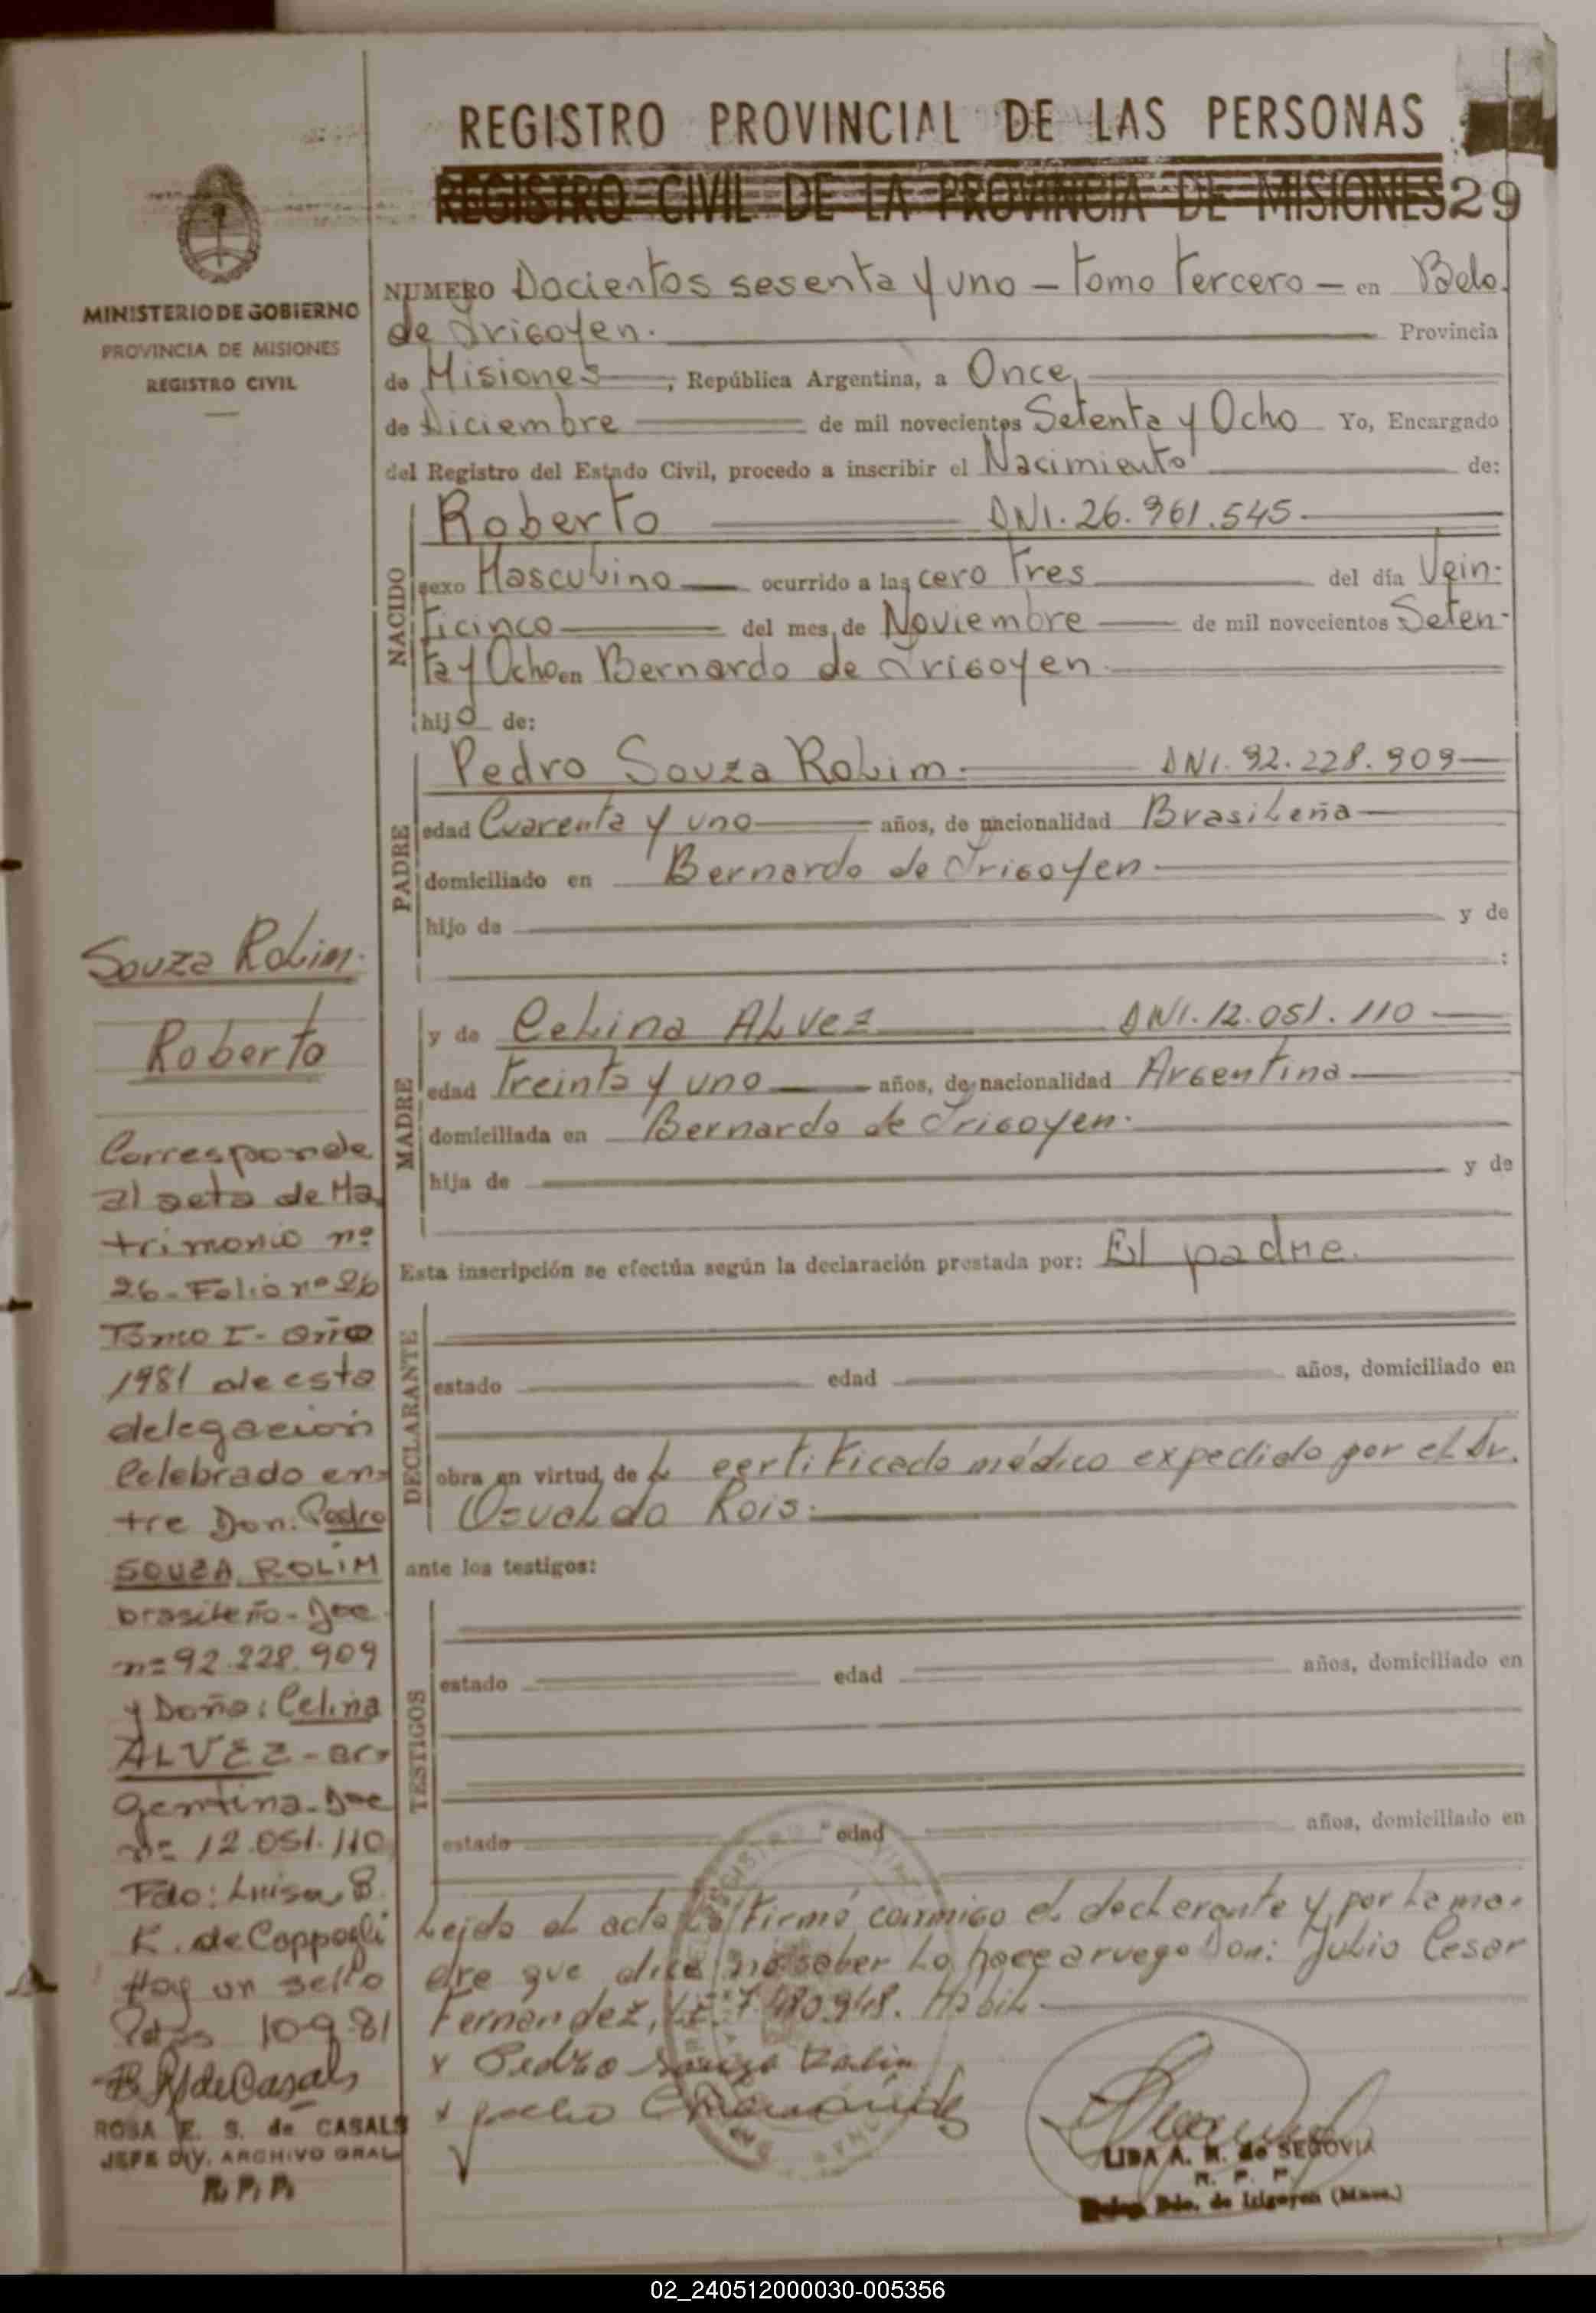 REGISTRO PROVINCIAL DE LAS PERSONAS
REGISTRO CIVIL DE LA PROVINCIA DE MISIONES 29
MINISTERIO DE GOBIERNO
PROVINCIA DE MISIONES
REGISTRO CIVIL
NUMERO Docientos sesenta y uno - Tomo Tercero - en Bdo.
de Irigoyen. Provincia
de Misiones, República Argentina, a Once
de Diciembre de mil novecientos Setenta y Ocho Yo, Encargado
del Registro del Estado Civil, procedo a inscribir el Nacimiento de:
NACIDO
Roberto DNI. 26.961.545
sexo Masculino ocurrido a las cero Tres del día Vein-
ticinco del mes de Noviembre de mil novecientos Seten-
ta y Ocho en Bernardo de Irigoyen
hijo de:
PADRE
Pedro Souza Rolim DNI. 92.228.909
edad Cuarenta y uno años, de nacionalidad Brasileña
domiciliado en Bernardo de Irigoyen
hijo de y de
:
MADRE
y de Celina Alvez DNI. 12.051.110
edad Treinta y uno años, de nacionalidad Argentina
domiciliada en Bernardo de Irigoyen.
hija de y de
Esta inscripción se efectúa según la declaración prestada por: El padre.
DECLARANTE
estado edad años, domiciliado en
obra en virtud de l certificado médico expedido por el Dr.
Osvaldo Rois.
ante los testigos:
TESTIGOS
estado edad años, domiciliado en
estado edad años, domiciliado en
Leida el acta La firmó conmigo el declarante y por la ma-
dre que dice no saber lo hace a ruego Don: Julio Cesar
Fernandez, 7.480.948. Habil
x Pedro Souza Rolin
x
LIDA A. M. de SEGOVIA
R. P. P.
Deleg. Bdo. de Irigoyen (Mnes.)
Souza Rolim
Roberto
Corresponde
al acta de Ma
trimonio nº
26 - Folio nº 26
Tomo I - año
1981 de esta
delegación
Celebrado en=
tre Don. Pedro
SOUZA ROLIM
brasileño - Doc
nº 92.228.909
y Doña: Celina
ALVEZ - ar=
gentina - Doc
nº 12.051.110
Fdo: Luisa B.
K. de Coppagli
Hay un sello
10-9-81
ROSA E. S. de CASALS
JEFE DIV. ARCHIVO GRAL
R.P.P.
02_240512000030-005356